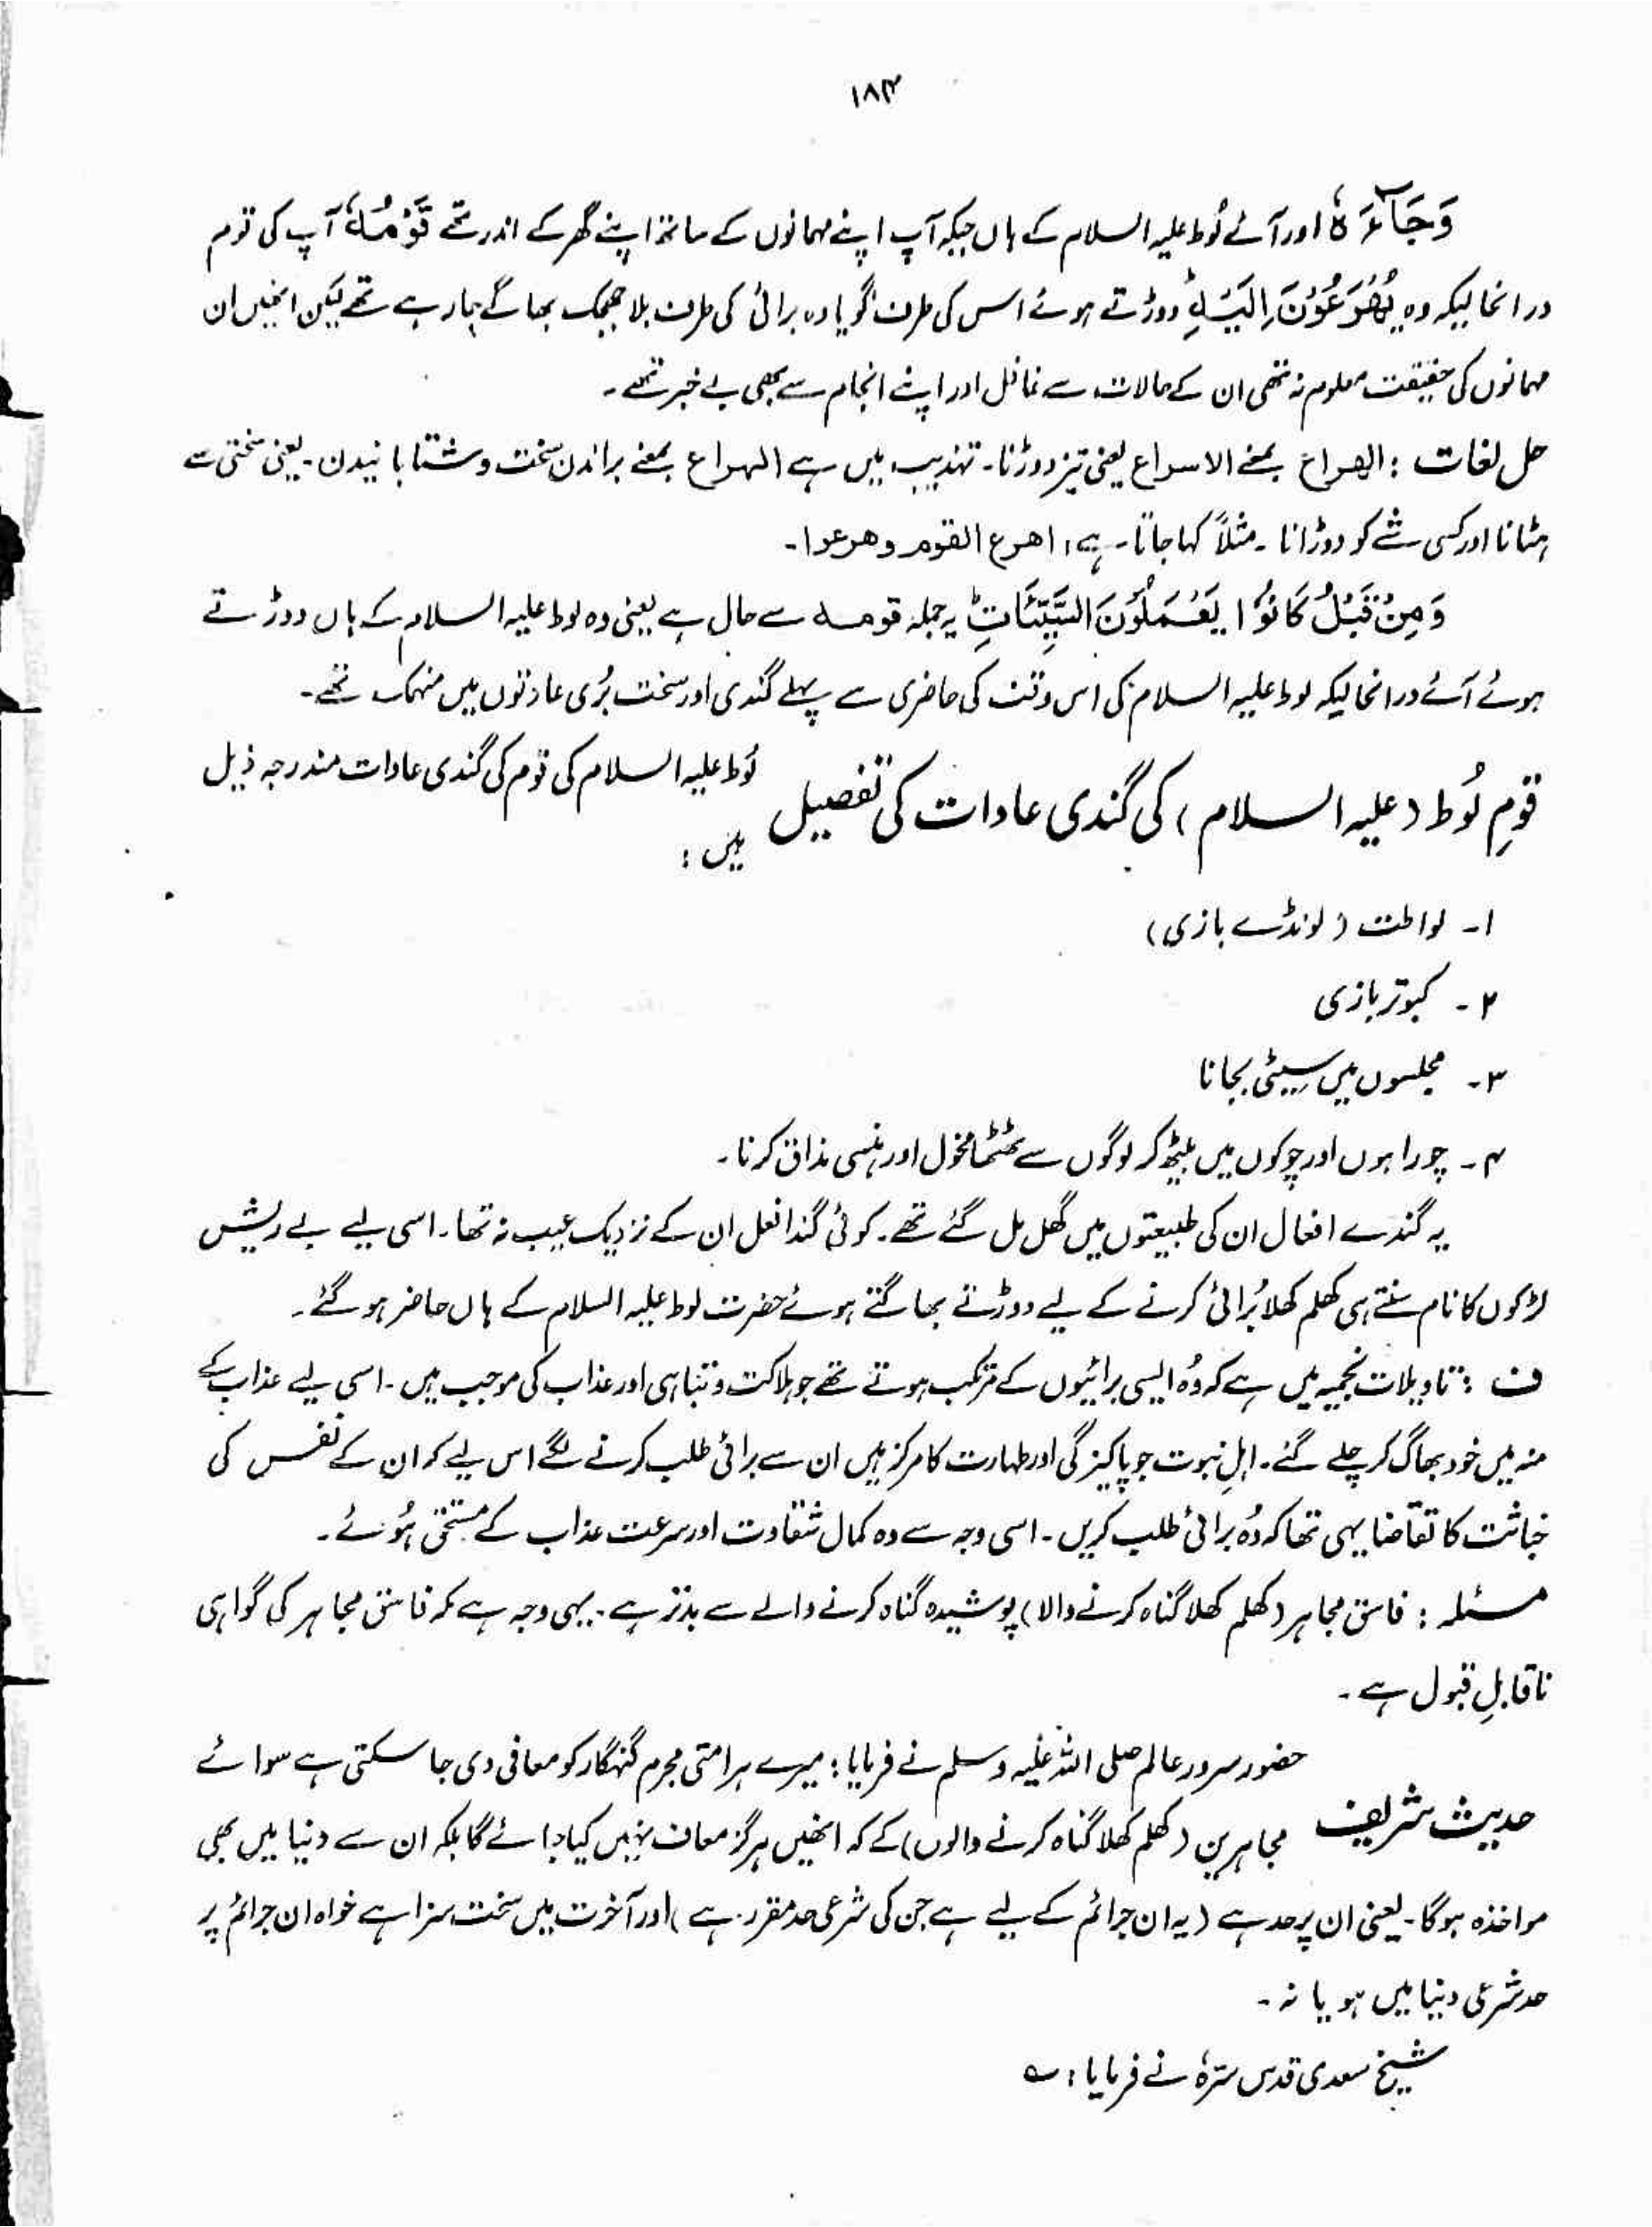 ۱۸۳
وَجَآءَہٗ اور آئے لُوط علیہ السلام کے ہاں جبکہ آپ اپنے مہمانوں کے ساتھ اپنے گھر کے اندر تھے قَوْمُہٗ آپ کی قوم
درانحالیکہ وہ یُھْرَعُوْنَ اِلَیْہِ دوڑتے ہوئے اس کی طرف گویا وہ برائی کی طرف بلا جھجک بھاگے جا رہے تھے لیکن انھیں ان
مہمانوں کی حقیقت معلوم نہ تھی ان کے حالات سے غافل اور اپنے انجام سے بھی بے خبر تھے۔
حل لغات : الھراع بمعنے الاسراع یعنی تیز دوڑنا۔ تہذیب میں ہے الہراع بمعنے براندن سخت و شتابانیدن۔ یعنی سختی سے
ہٹانا اور کسی شے کو دوڑانا ۔ مثلاً کہا جاتا ہے: اھرع القوم وھرعوا۔
وَمِنْ قَبْلُ کَانُوْا یَعْمَلُوْنَ السَّیِّئَاتِ ؕ یہ جملہ قومہ سے حال ہے یعنی وہ لوط علیہ السلام کے ہاں دوڑتے
ہوئے آئے درانحالیکہ لوط علیہ السلام کی اس وقت کی حاضری سے پہلے گندی اور سخت بُری عادتوں میں منہمک تھے۔
قومِ لُوط (علیہ السلام) کی گندی عادات کی تفصیل
لُوط علیہ السلام کی قوم کی گندی عادات مندرجہ ذیل
ہیں :
۱۔ لواطت (لونڈے بازی)
۲۔ کبوتر بازی
۳۔ مجلسوں میں سیٹی بجانا
۴۔ چوراہوں اور چوکوں میں بیٹھ کر لوگوں سے ٹھٹھا مخول اور ہنسی مذاق کرنا۔
یہ گندے افعال ان کی طبیعتوں میں گھل مل گئے تھے۔ کوئی گندا فعل ان کے نزدیک عیب نہ تھا۔ اسی لیے بے ریش
لڑکوں کا نام سنتے ہی کھلم کھلا بُرائی کرنے کے لیے دوڑتے بھاگتے ہوئے حضرت لوط علیہ السلام کے ہاں حاضر ہو گئے۔
ف : تاویلات نجمیہ میں ہے کہ وُہ ایسی برائیوں کے مرتکب ہوتے تھے جو ہلاکت و تباہی اور عذاب کی موجب ہیں۔ اسی لیے عذاب کے
منہ میں خود بھاگ کر چلے گئے۔ اہلِ نبوت جو پاکیزگی اور طہارت کا مرکز ہیں ان سے برائی طلب کرنے لگے اس لیے کہ ان کے نفس کی
خباثت کا تقاضا یہی تھا کہ وُہ برائی طلب کریں۔ اسی وجہ سے وہ کمال شقاوت اور سرعت عذاب کے مستحق ہُوئے۔
مسئلہ : فاسق مجاہر (کھلم کھلا گناہ کرنے والا) پوشیدہ گناہ کرنے والے سے بدتر ہے۔ یہی وجہ ہے کہ فاسق مجاہر کی گواہی
ناقابلِ قبول ہے۔
حدیث شریف
حضور سرور عالم صلی اللہ علیہ وسلم نے فرمایا : میرے ہر امتی مجرم گنہگار کو معافی دی جا سکتی ہے سوائے
مجاہرین (کھلم کھلا گناہ کرنے والوں) کے کہ انھیں ہرگز معاف نہیں کیا جائے گا بلکہ ان سے دنیا میں بھی
مواخذہ ہوگا۔ یعنی ان پر حد ہے (یہ ان جرائم کے لیے ہے جن کی شرعی حد مقرر ہے) اور آخرت میں سخت سزا ہے خواہ ان جرائم پر
حد شرعی دنیا میں ہو یا نہ ۔
شیخ سعدی قدس سرّہٗ نے فرمایا : ؎